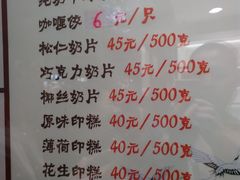 咖喱饺 6元/只
松仁奶片 45元/500克
巧克力奶片 45元/500克
椰丝奶片 45元/500克
原味印糕 40元/500克
薄荷印糕 40元/500克
花生印糕 40元/500克